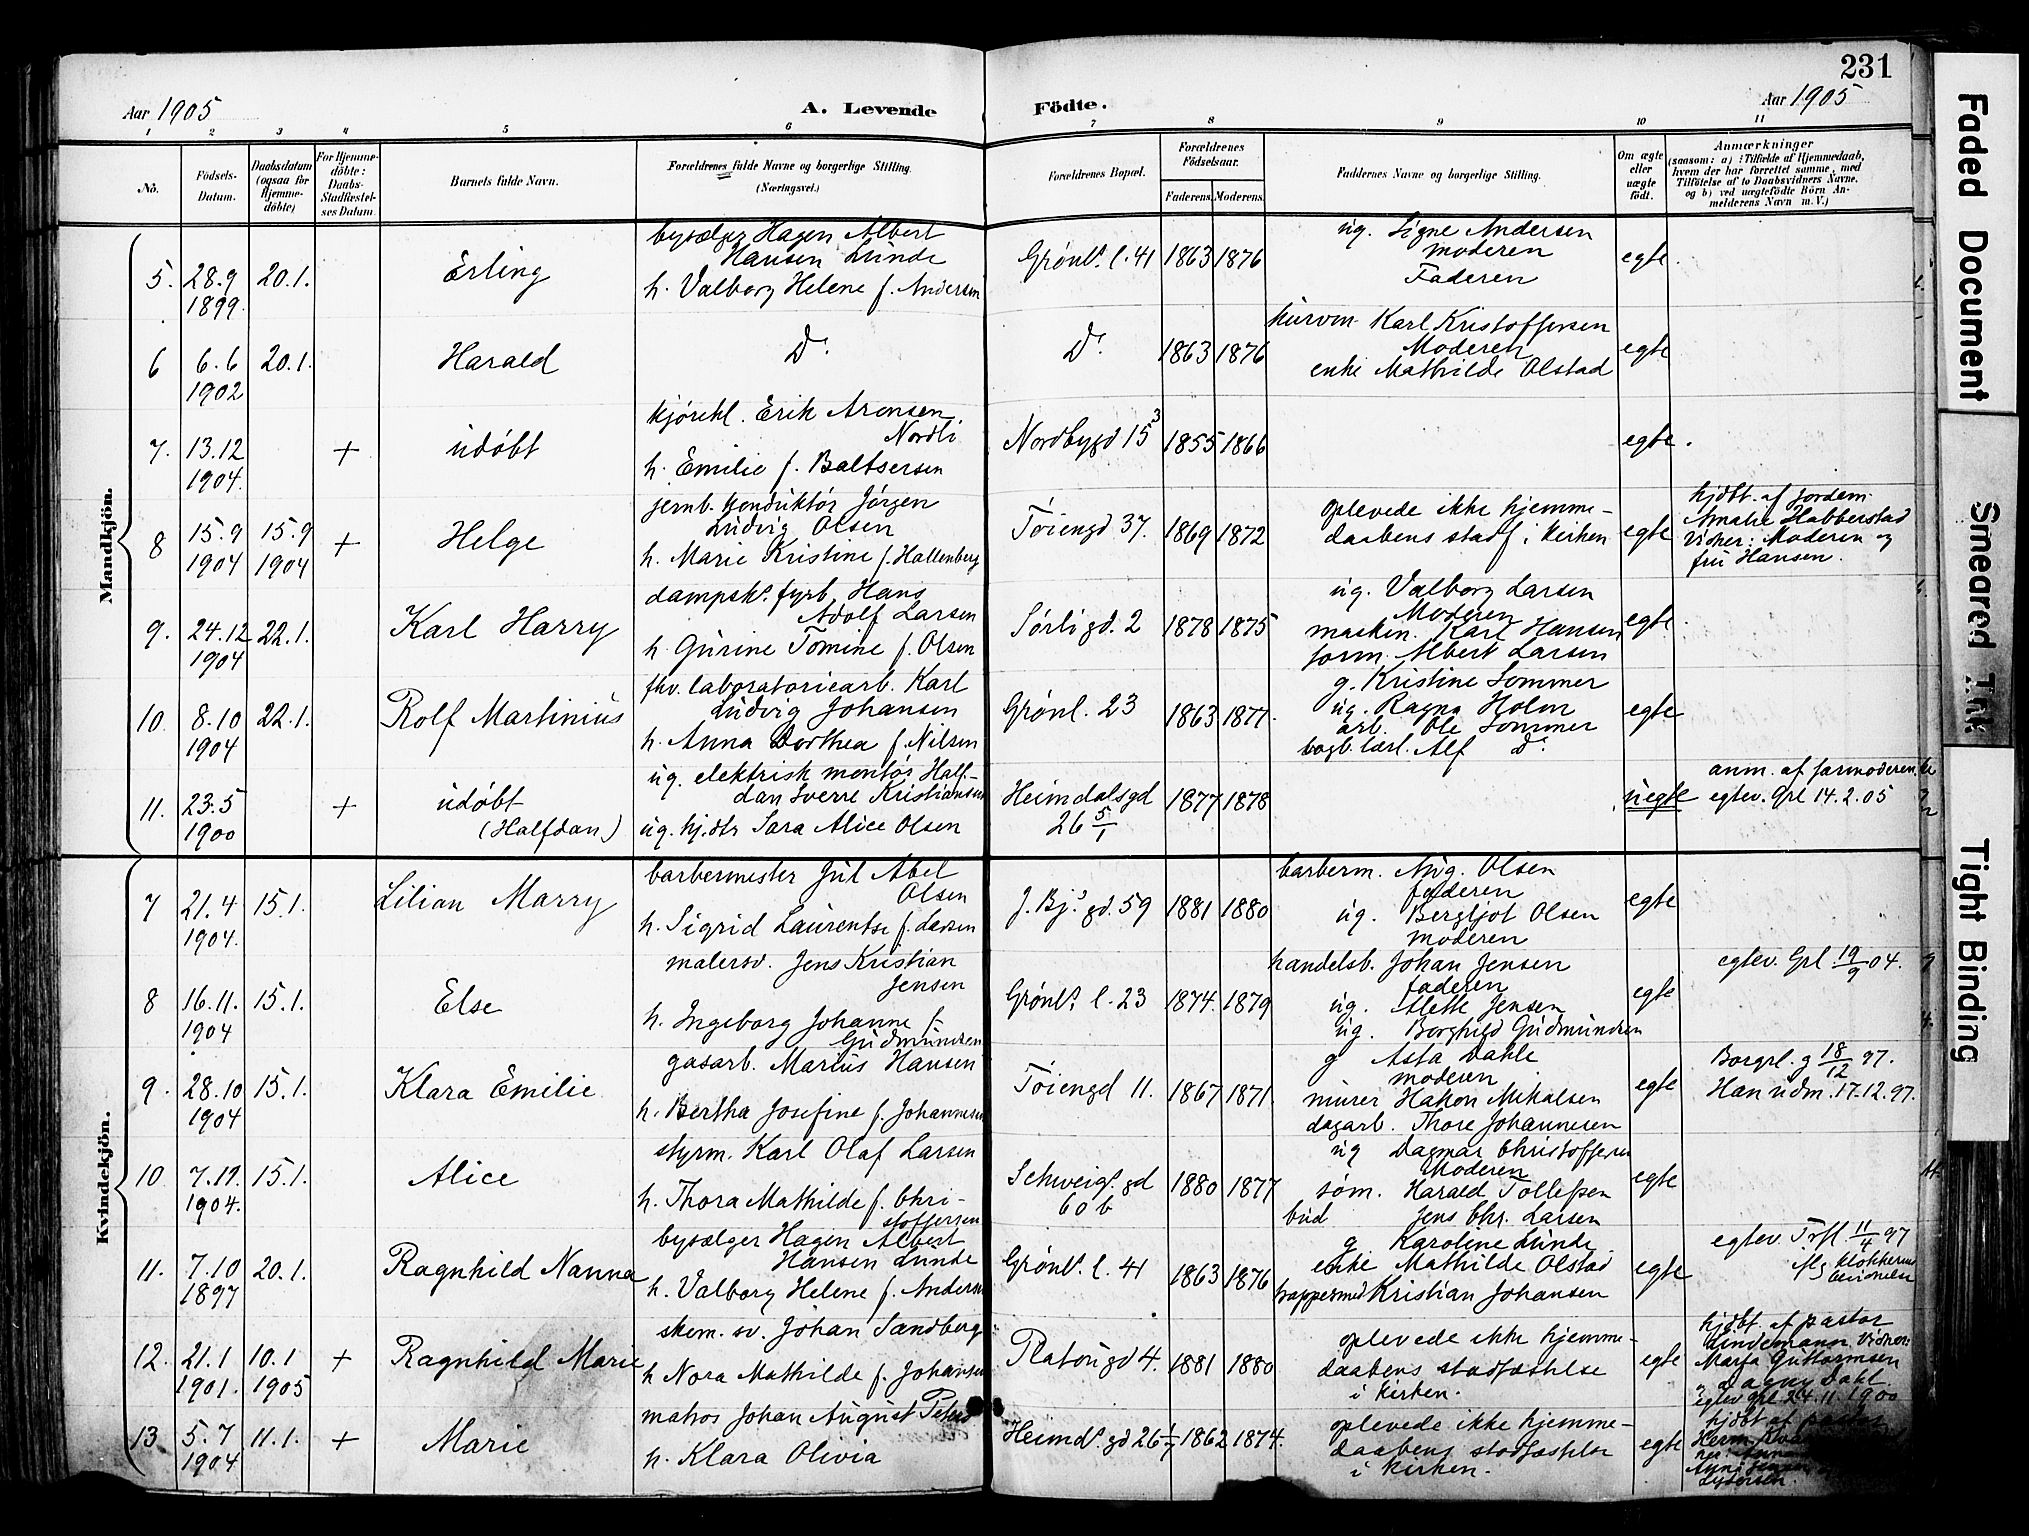 231
Aar 1905
A. Levende Födte.
Aar 1905
1 2 3 4 5 6 7 8 9 10 11
No.
Födsels-Datum.
Daabsdatum (ogsaa for Hjemme-döbte)
For Hjemme-döbte: Daabs-Stadfæstel-ses Datum.
Barnets fulde Navn.
Forældrenes fulde Navne og borgerlige Stilling. (Næringsvei.)
Forældrenes Bopæl.
Forældrenes Födselsaar.
Faderens. Moderens.
Faddernes Navne og borgerlige Stilling.
Om ægte eller uægte födt.
Anmærkninger
(saasom: a) i Tilfælde af Hjemmedaab,
hvem der har forrettet samme, med
Tilföielse af to Daabsvidners Navne,
og b) ved uægtefödte Börn An-
melderens Navn m. V.)
Mandkjön.
5. 28.9 1899. 20.1. Erling
bysælger Hagen Albert
Hansen Lunde
h. Valborg Helene f. Andersen
Grønls. l. 41 1863 1876
ug. Signe Andersen
moderen
Faderen
egte.
6 6.6 1902 20.1. Harald
Do.
Do. 1863 1876
Karl Kristoffersen
Moderen
enke Mathilde Olstad
egte
7. 13.12 1904. + udøbt
kjørekl. Erik Arensen
Nordli
h. Emilie f. Baltsersen
Nordbygd 15 3 1855 1866
egte.
8 15.9 1904 15.9 1904 + Helge
jernb. konduktør Jørgen
Ludvig Olsen
h. Marie Kristine f. Hallenberg
Tøiengd 37. 1869 1872
oplevede ikke hjemme-
daabens stadf. i kirken
egte
hjdbt. af jordem.
Amalie Habberstad
Vidner: Moderen og
fru Hansen.
9. 24.12 1904 22.1. Karl Harry
dampsks. fyrb. Hans
Adolf Larsen
h. Gurine Tomine f. Olsen
Sørligd. 2 1878 1875
ug. Valborg Larsen
Moderen
maskin. Karl Hansen
form. Albert Larsen
egte.
10. 8.10 1904 22.1. Rolf Martinius
fhv. laboratoriearb. Karl
Ludvig Johansen
h. Anna Dorthea f. Nilsen
Grønl. 23 1863 1877.
g. Kristine Sommer
ug. Ragna Holm
arb. Ole Sommer
bogb. lærl. Alf Do.
egte
11. 23.5 1900 + udøbt
(Halfdan)
ug. elektrisk montør Half-
dan Sverre Kristiansen
ug. hj.dtr Sara Alice Olsen
Heimdalsgd
26 5/1 1877 1878
uegte
anm. af farmoderen.
egtev. Grl 14.2.05
Kvindekjön.
7 21.4 1904. 15.1. Lilian Marry
barbermester Jul Abel
Olsen
h. Sigrid Laurentse f. Larsen
J. Bj.s gd. 59 1881 1880
barberm. Aug. Olsen
faderen
ug. Bergljot Olsen
moderen
egte
8 16.11. 1904 15.1. Else
malersv. Jens Kristian
Jensen
h. Ingeborg Johanne f.
Gudmundsen
Grønls. l. 23 1874. 1879
handelsb. Johan Jensen
faderen
ug. Alette Jensen
ug. Borghild Gudmundsen
egte
egtev. Grl. 19/9 04.
9. 28.10 1904 15.1. Klara Emilie
gasarb. Marius Hansen
h. Bertha Josefine f. Johannesen
Tøiengd 11. 1867 1871
g Asta Dahle
moderen
murer Hakon Mikalsen
dagarb. Thore Johannesen
egte
Borgrl. g 18/12 97.
Han udm. 17.12.97.
10 7.11 1904. 15.1. Alice
styrm. Karl Olaf Larsen
h. Thora Mathilde f. Chri-
stoffersen
Schweigs. gd
60 b 1880 1877
ug Dagmar Christoffersen
Moderen
søm. Harald Tollefsen
bud Jens Chr. Larsen
egte
11. 7.10 1897 20.1. Ragnhild Nanna
bysælger Hagen Albert
Hansen Lunde
h. Valborg Helene f. Andersen
Grønls. l. 41 1863 1876
g Karoline Lunde
enke Mathilde Olstad
Kristian Johansen
egte
egtev. Trfl. 11/4 97
12. 21.1 1901. 10.1 1905 + Ragnhild Marie
skom. sv. Johan Sandberg
h Nora Mathilde f. Johansen
Platougd 4. 1881 1880
oplevede ikke hjemme-
daabens stadfæstelse
i kirken.
egte
hjdbt. af pastor
Lindemann Vidner:
Marfa Guttormsen
" Dagny Dahl.
Egtev grl 24.11.1900
13 5.7 1904 11.1. + Marie
matros Johan August
h. Klara Olivia
Heimds. gd 26 1/7 1862 1874.
oplevede ikke hjemme-
daabens stadfæstelse
i kirken.
egte
hjdbt af pastor
Herm.
Faded Document
Smeared Ink
Tight Binding